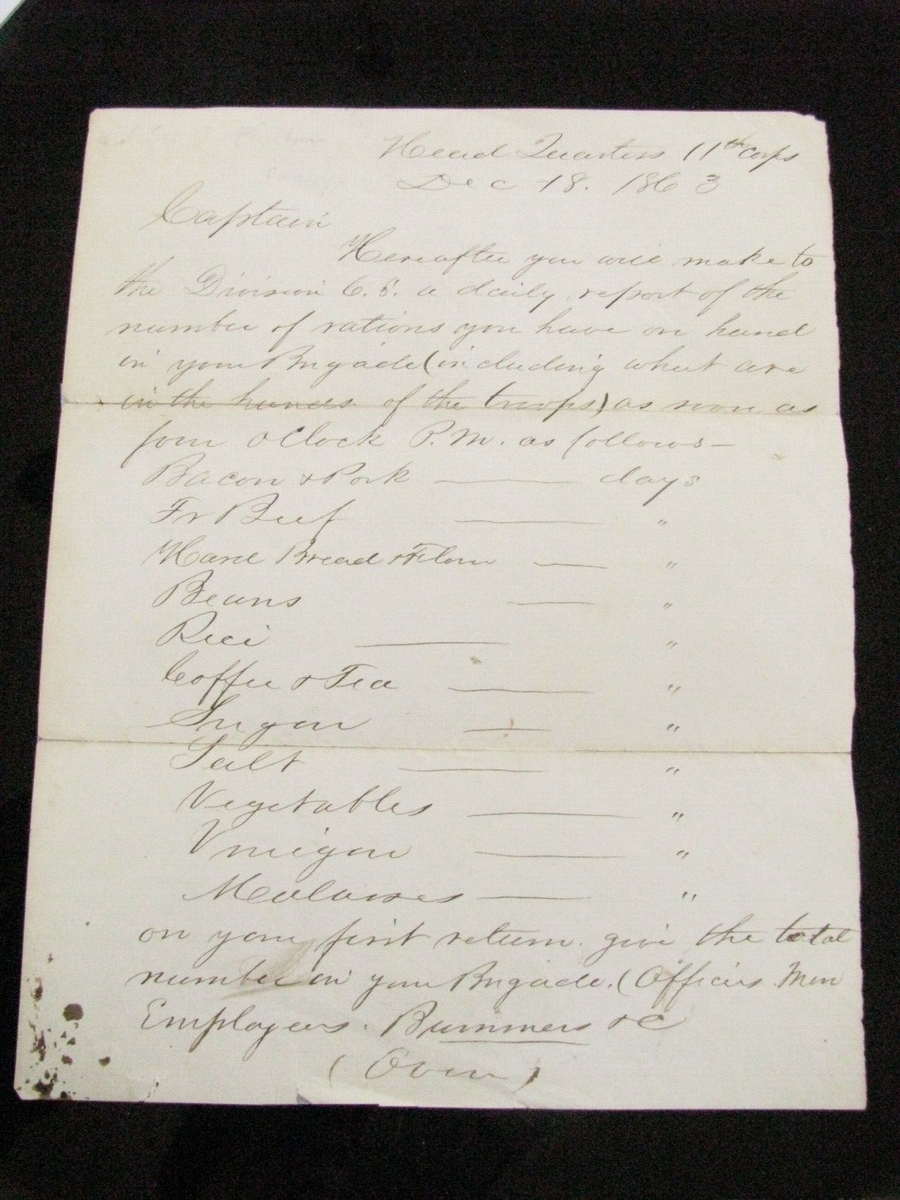 Head Quarters 11th Corps
Dec 18. 1863
Captain
Hereafter you will make to
the Division C.S. a daily report of the
number of rations you have on hand
in your Brigade (including what are
in the hands of the troops) as soon as
four o'Clock P.M. as follows—
Bacon & Pork —— days
Fr Beef —— "
Hard Bread & Flour —— "
Beans —— "
Rice —— "
Coffee & Tea —— "
Sugar —— "
Salt —— "
Vegetables —— "
Vinegar —— "
Molasses —— "
on your first return give the total
number in your Brigade. (Officers Men
Employees. Bummers &c
(Over)